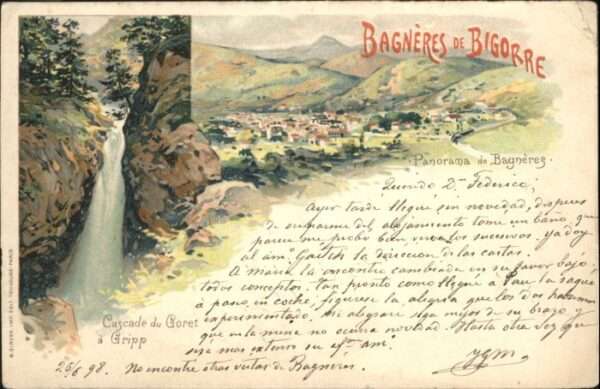 BAGNÈRES DE BIGORRE
Panorama de Bagnères
Cascade du Goret
à Gripp
Querido Dn Federico,
Ayer tarde llegue sin novedad, despues
de del alojamiento tome un baño que
parece me probo bien veremos sucesivos ya doy
al am. la direccion de las cartas.
A Maria la encontre cambiada en su favor bajo
todos conceptos. tan pronto como llegue a Pau la saque
á paseo, en coche, figurese la alegria que los dos habremos
esperimentado. Me alegrare siga mejor de su brazo y
que en la mina no ocurra novedad. Hasta otra vez que
sere mas estenso su afmo am.
25/6 98. No encontre otras vistas de Bagneres.